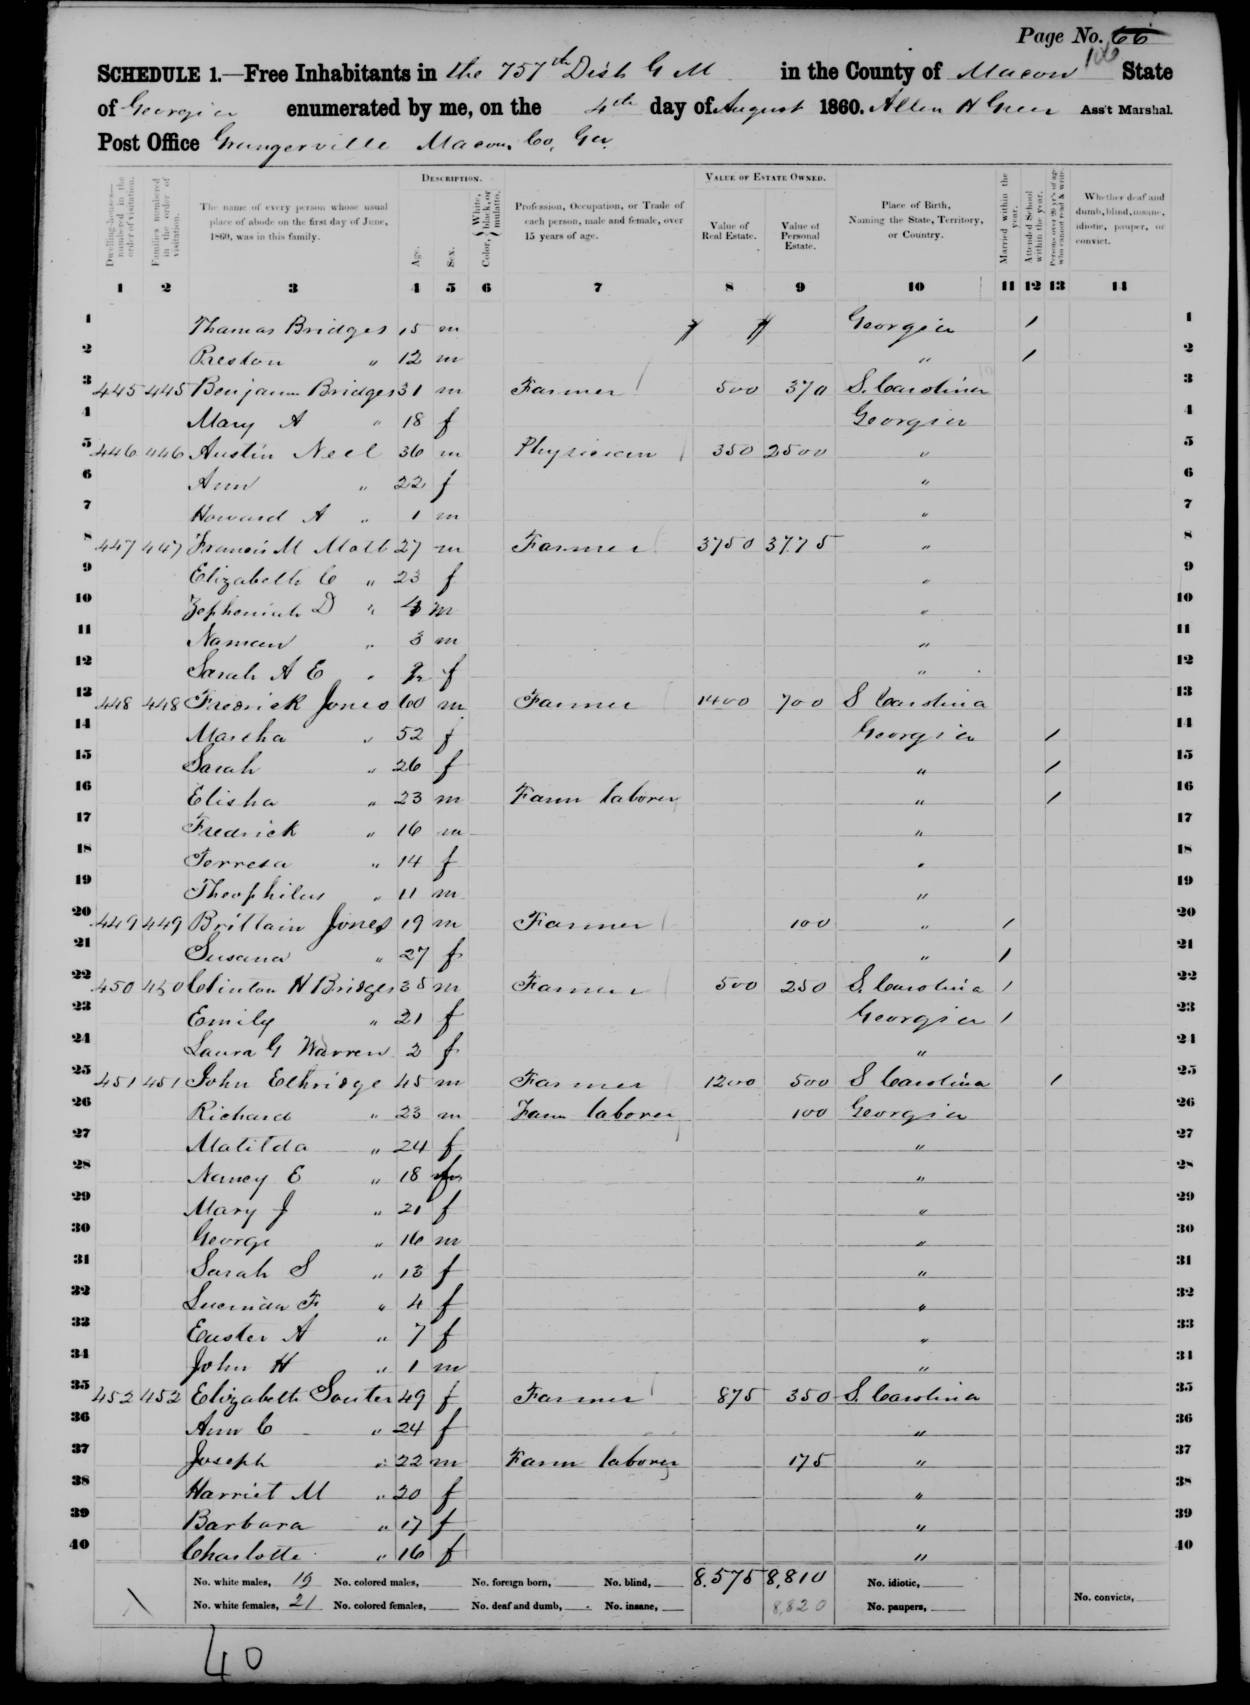 Page No. 66
106
SCHEDULE 1.—Free Inhabitants in the 757th Dist G M in the County of Macon State
of Georgia enumerated by me, on the 4th day of August 1860. Allen H Greer Ass't Marshal.
Post Office Grangerville Macon, Co, Ga.
Dwelling-houses—numbered in the order of visitation. Families numbered in the order of visitation. The name of every person whose usual place of abode on the first day of June, 1860, was in this family. DESCRIPTION. Age. Sex. Color, White, black, or mulatto. Profession, Occupation, or Trade of each person, male and female, over 15 years of age. VALUE OF ESTATE OWNED. Value of Real Estate. Value of Personal Estate. Place of Birth, Naming the State, Territory, or Country. Married within the year. Attended School within the year. Persons over 20 y'rs of age who cannot read & write. Whether deaf and dumb, blind, insane, idiotic, pauper, or convict.
1 2 3 4 5 6 7 8 9 10 11 12 13 14
1 Thomas Bridges 15 m Georgia / 1
2 Preston " 12 m " / 2
3 445 445 Benjamin Bridges 31 m Farmer 500 370 S. Carolina 3
4 Mary A " 18 f Georgia 4
5 446 446 Austin Neel 36 m Physician 350 2500 " 5
6 Ann " 22 f " 6
7 Howard A " 1 m " 7
8 447 447 Francis M Mott 27 m Farmer 3750 3775 " 8
9 Elizabeth C " 23 f " 9
10 Zepheniah D " 4 m " 10
11 Naman " 3 m " 11
12 Sarah A E " f " 12
13 448 448 Fredrick Jones 60 m Farmer 1400 700 S Carolina 13
14 Martha " 52 f Georgia / 14
15 Sarah " 26 f " / 15
16 Elisha " 23 m Farm laborer " / 16
17 Fredrick " 16 m " 17
18 Terresa " 14 f " 18
19 Theophilus " 11 m " 19
20 449 449 Brittain Jones 19 m Farmer 100 " / 20
21 Susana " 27 f " / 21
22 450 450 Clinton H Bridges 35 m Farmer 500 250 S. Carolina / 22
23 Emily " 21 f Georgia / 23
24 Laura G Warren 2 f " 24
25 451 451 John Ethridge 45 m Farmer 1200 500 S Carolina / 25
26 Richard " 23 m Farm laborer 100 Georgia 26
27 Matilda " 24 f " 27
28 Nancy E " 18 f " 28
29 Mary J " 21 f " 29
30 George " 16 m " 30
31 Sarah S " 13 f " 31
32 Lucinda F " 4 f " 32
33 Easter A " 7 f " 33
34 John H " 1 m " 34
35 452 452 Elizabeth Souter 49 f Farmer 875 350 S. Carolina 35
36 Ann C " 24 f " 36
37 Joseph " 22 m Farm laborer 175 " 37
38 Harriet M " 20 f " 38
39 Barbara " 17 f " 39
40 Charlotte " 16 f " 40
No. white males, 19 No. colored males, No. foreign born, No. blind, 8,575 8,810 No. idiotic,
No. white females, 21 No. colored females, No. deaf and dumb, No. insane, 8,820 No. paupers, No. convicts,
40